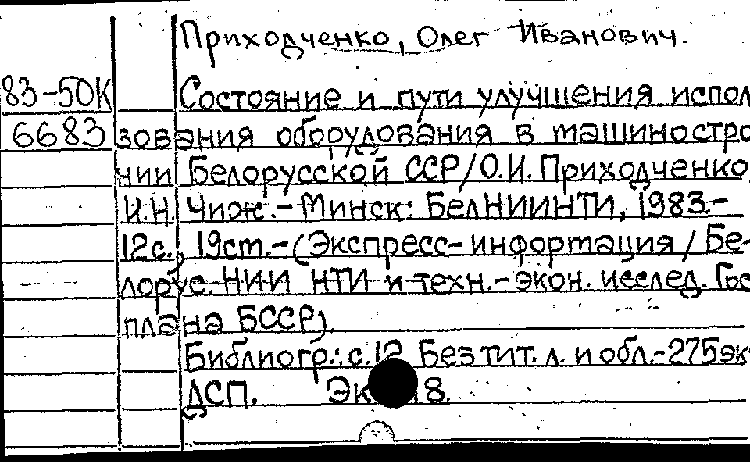 Приходченко, Олег Иванович.
83-50К Состояние и пути улучшения испол
6683 зования оборудования в машиностро
нии Белорусской ССР/О.И. Приходченко
И.Н. Чиж.-Минск: БелНИИНТИ, 1983.-
12с., 19см.-(Экспресс-информация/Бе-
лорус. НИИ НТИ и техн.-экон. исслед. Гос
плана БССР).
Библиогр.: с.12 Без тит. л. и обл.-275эк
ДСП.